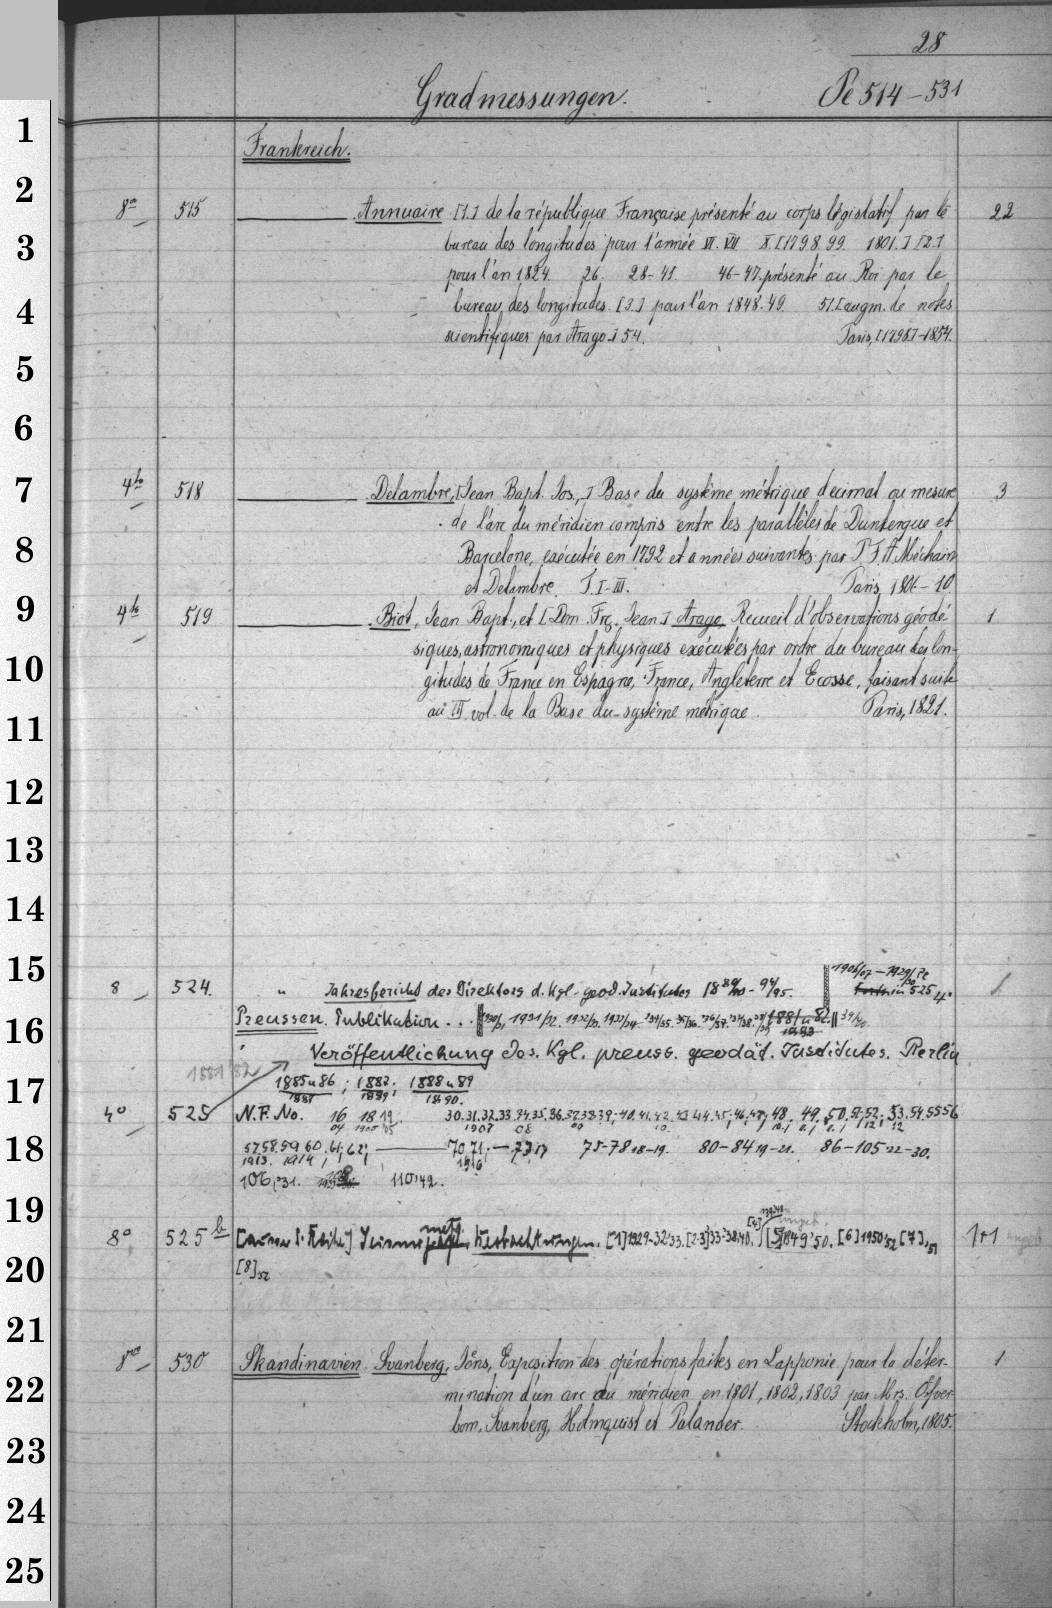 28
Gradmessungen. Pe 514-531
1
Frankreich.
2
8° 515 Annuaire [1.] de la république Française présenté au corps législatif par le 22
3
bureau des longitudes pour l'année VI. VII X. [1798. 99. 1801.] [2.]
pour l'an 1824. 26. 28-41. 46-47. présenté au Roi par le
4
bureau des longitudes. [3.] pour l'an 1848. 49. 51. [augm. de notes
scientifiques par Arago.] 54. Paris, [1798]-1854.
5
6
7
4to 518 Delambre, [Jean Bapt. Jos.,] Base du système métrique décimal ou mesure 3
de l'arc du méridien compris entre les parallèles de Dunkerque et
8
Barcelone, exécutée en 1792 et années suivantes par P. F. A. Méchain
et Delambre. T. I-III. Paris, 1806-10
9
4to 519 Biot, Jean Bapt., et [Dom. Frç. Jean] Arago, Recueil d'observations géodé- 1
siques, astronomiques et physiques exécutées par ordre du bureau des lon-
10
gitudes de France en Espagne, France, Angleterre et Ecosse, faisant suite
au III vol. de la Base du système métrique. Paris, 1821.
11
12
13
14
15
1906/07 - 1929/30
8 524. " Jahresbericht des Direktors d. Kgl. geod. Institutes 1889/90 - 94/95. in 525 4° 1
16
Preussen. Publikation... 1931/32. 1932/33. 1933/34. 1881 u 82.
Veröffentlichung des Kgl. preuss. geodät. Institutes. Berlin
17
1881/82 1885 u 86; 1882; 1888 u 89
1887 1889; 1890.
4° 525 N.F. No. 16 18 19. 30.31.32.33.34.35.36.37.38.39.-40.41.42.43 44.45.46.47; 48. 49. 50. 51.52; 53.54.55 56
04 1905 1907 08
18
57.58.59 60. 61; 62; 70. 71; - 73 17 75-78 18-19. 80-84 19-21. 86-105 22-30.
1913. 1914 1916
106, 31. 110, 42.
19
8° 525 b Seismometr. Beobachtungen. [1] 1929-32, 33. [2-3] [4] [5] 1849, 50. [6] 1950, 52 [7], 51 1+1
20
[8] 52
21
8vo 530 Skandinavien. Svanberg, Jöns, Exposition des opérations faites en Lapponie pour la déter- 1
22
mination d'un arc du méridien en 1801, 1802, 1803 par Mrs. Öfver-
bom, Svanberg, Holmquist et Palander. Stockholm, 1805.
23
24
25